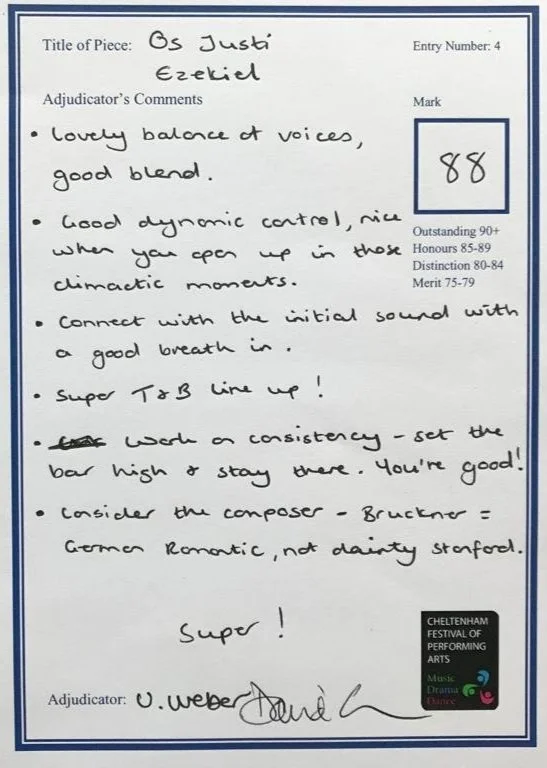 Title of Piece: Os Justi
Ezekiel
Entry Number: 4
Adjudicator's Comments
Mark
88
Outstanding 90+
Honours 85-89
Distinction 80-84
Merit 75-79
• Lovely balance of voices,
good blend.
• Good dynamic control, nice
when you open up in those
climactic moments.
• Connect with the initial sound with
a good breath in.
• Super T&B line up!
• Work on consistency - set the
bar high & stay there. You're good!
• Consider the composer - Bruckner =
German Romantic, not dainty Stanford.
Super!
CHELTENHAM
FESTIVAL OF
PERFORMING
ARTS
Music
Drama
Dance
Adjudicator: U. Weber